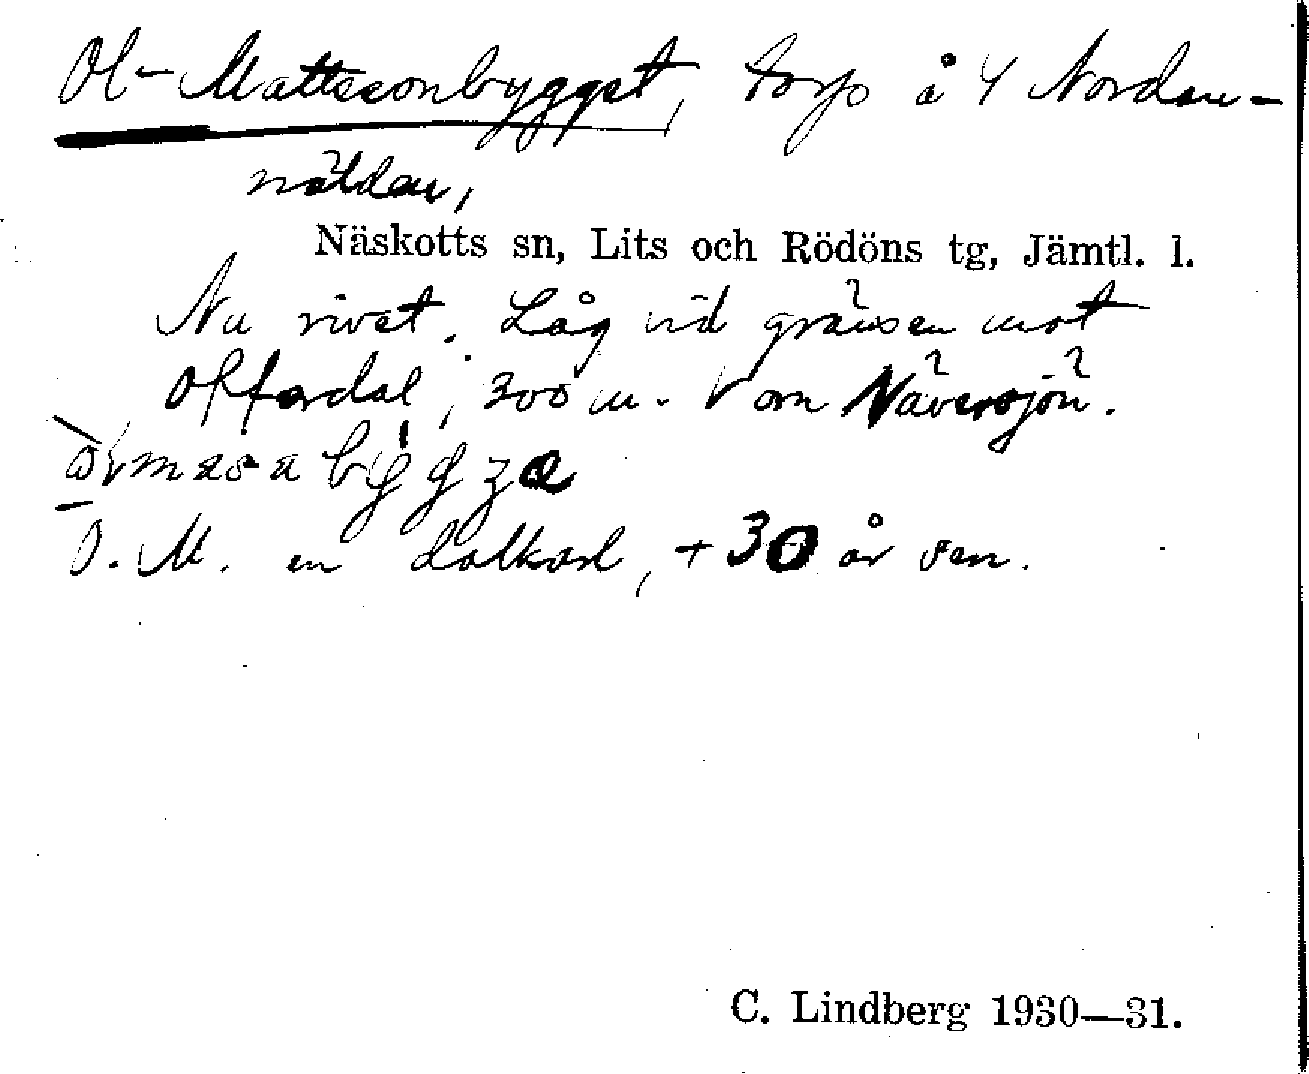 Ol-Mattssonbygget, torp å 4 Norden-
nälden,
Näskotts sn, Lits och Rödöns tg, Jämtl. l.
Nu rivet. Låg vid gränsen mot
Offerdal, 300 m. V om Näversjön.
O. M. en dalkarl, + 30 år sen.
C. Lindberg 1930—31.